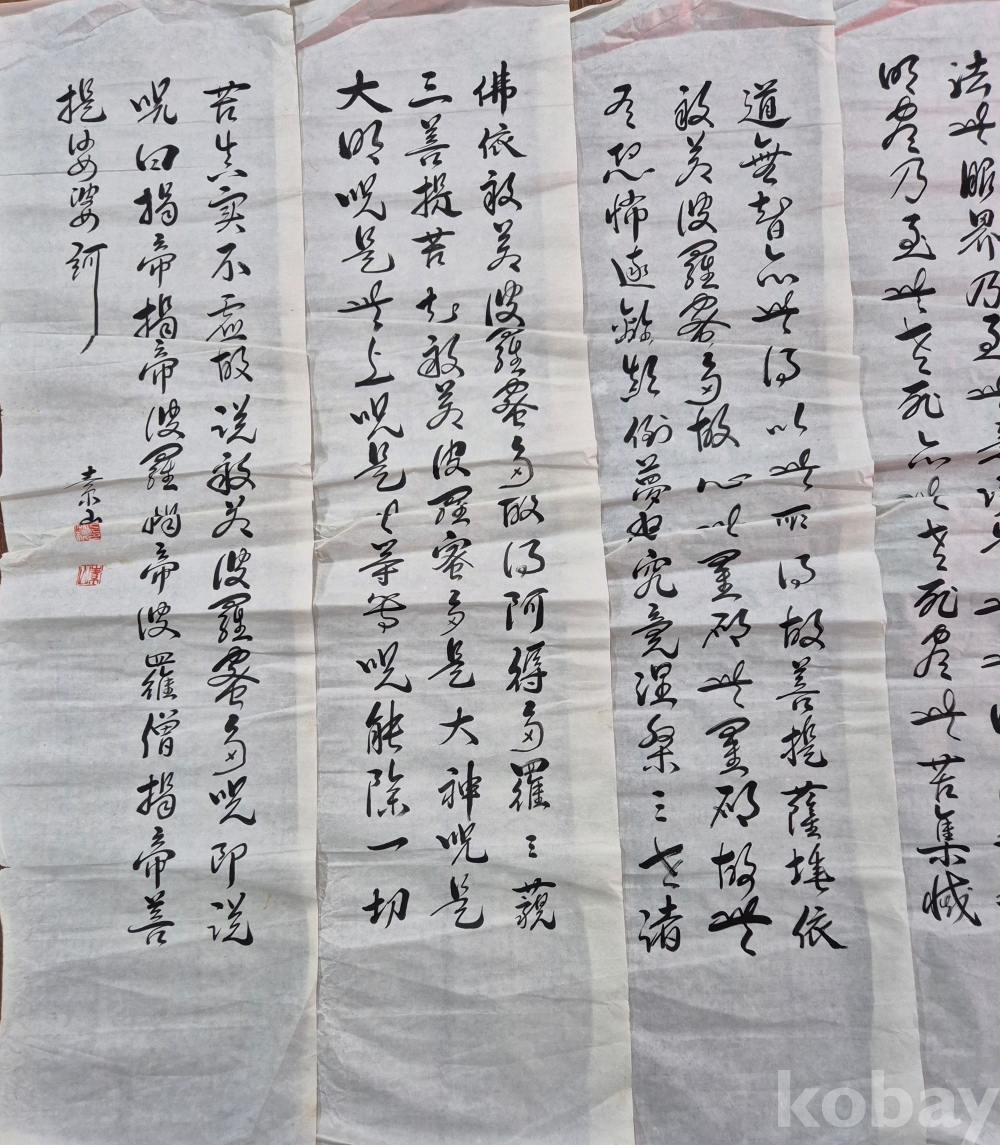 法無眼界乃至無意識界無無
明盡乃至無老死亦無老死盡無苦集滅
道無智亦無得以無所得故菩提薩埵依
般若波羅蜜多故心無罣礙無罣礙故無
有恐怖遠離顛倒夢想究竟涅槃三世諸
佛依般若波羅蜜多故得阿得多羅三藐
三菩提苦知般若波羅蜜多是大神呪是
大明呪是無上呪是無等等呪能除一切
苦真实不虛故说般若波羅蜜多呪即说
呪曰揭帝揭帝波羅揭帝波羅僧揭帝菩
提娑婆訶
素山
kobay